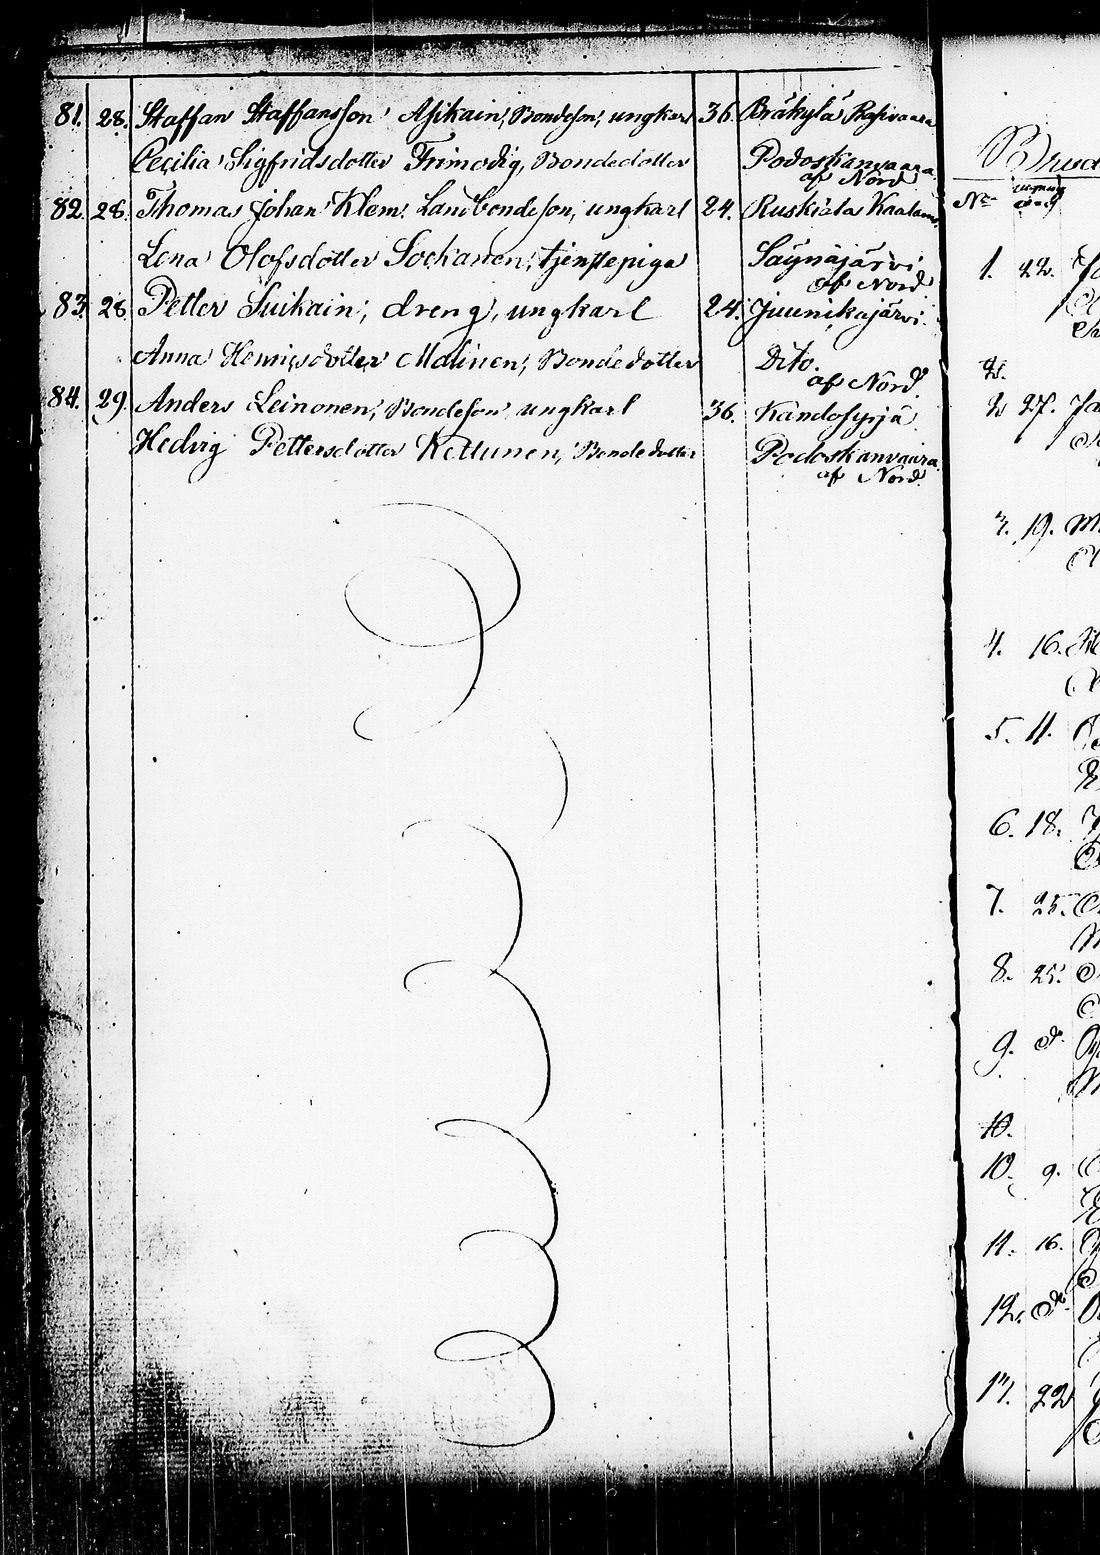 81. 28. Staffan Staffansson Asikain, Bondeson, ungkarl 36. Bräkylä Rasivaara
Cecilia Sigfridsdotter Frimodig, Bondedotter Podoskanvaara
af Nord
82. 28. Thomas Johan Klem, Landbondeson, ungkarl 24. Ruskiala Kaalam
Lena Olofsdotter Sockanen, tjenstepiga Säynäjärvi
af Nord
83. 28. Petter Suikain, dreng, ungkarl 24. Juunikajärvi.
Anna Henricsdotter Malinen, Bondedotter Dito.
af Nord.
84. 29. Anders Leinonen, Bondeson ungkarl 36. Kandosyrjä
Hedvig Pettersdotter Kettunen, Bondedotter Podoskanvaara
af Nord.
Brud
No
1. 22.
2.
2 27. Ja
3. 19.
4. 16.
5. 11.
6. 18.
7. 25.
8. 25.
9. d.
10.
10. 9.
11. 16.
12. do
22